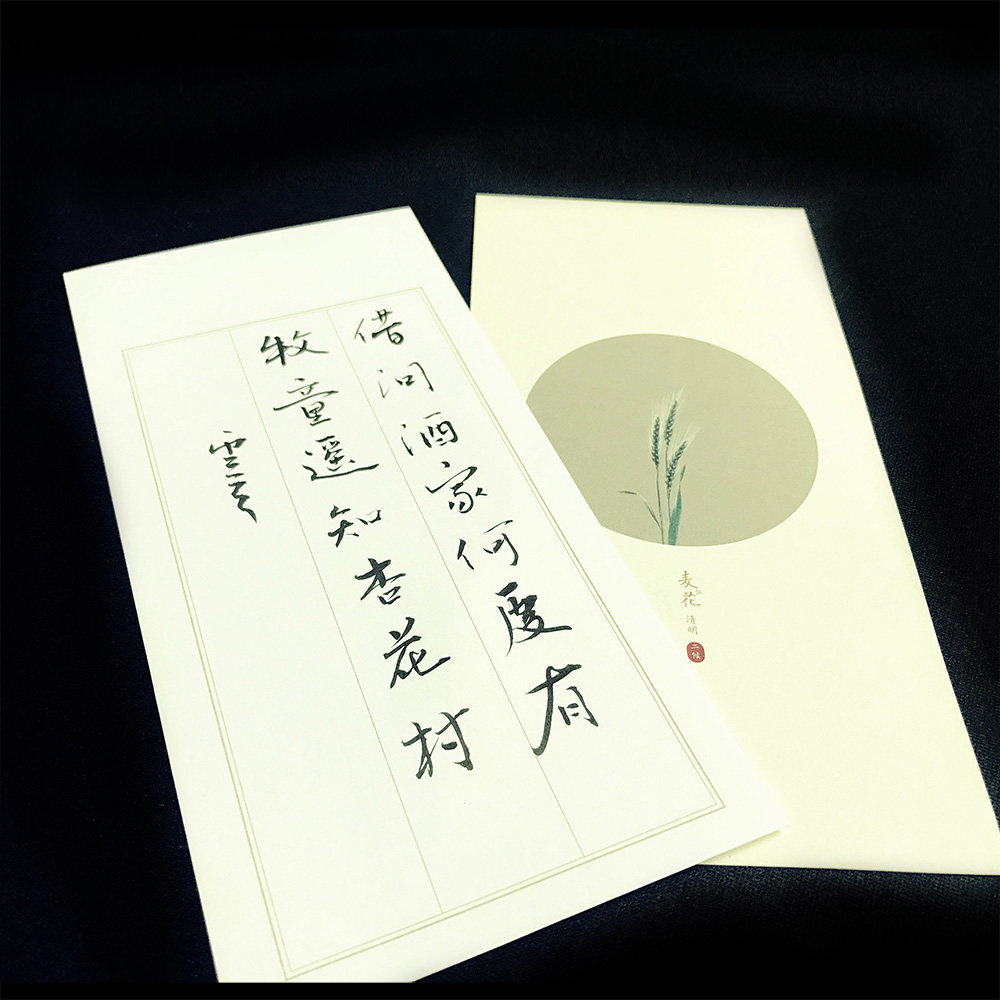 借问酒家何處有
牧童遥知杏花村
雲
麦花
清明
二候